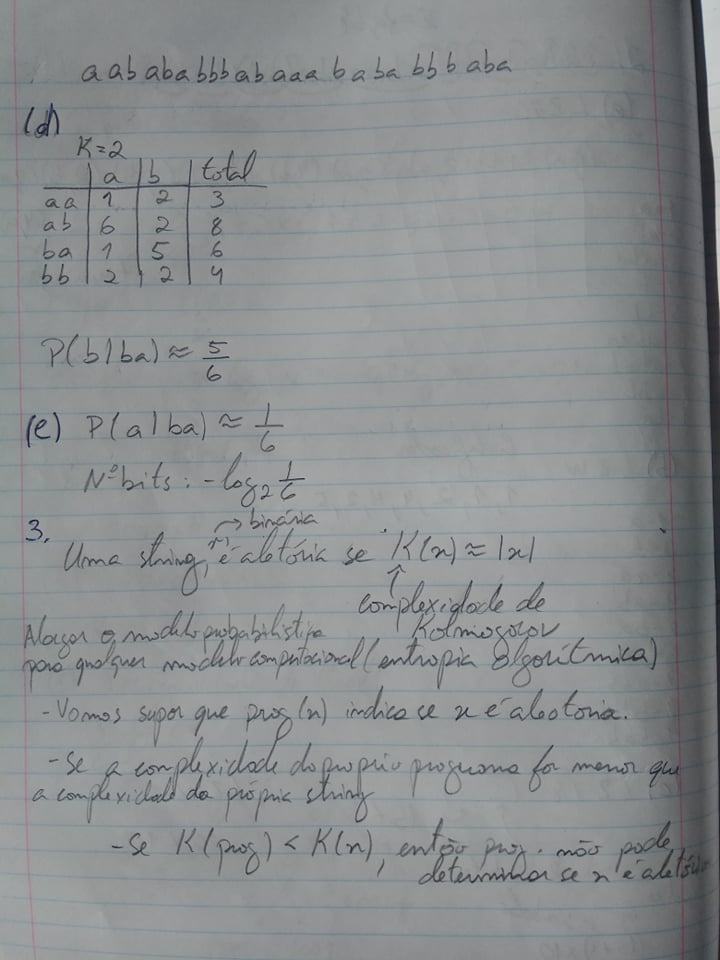 aabababbbabaaabababbbaba
(d)
K=2
a b total
aa 1 2 3
ab 6 2 8
ba 1 5 6
bb 2 2 4
P(b|ba) ≈ 5/6
(e) P(a|ba) ≈ 1/6
Nº bits : -log₂ 1/6
3.
→ binária
Uma string, é aletória se K(x) ≈ |x|
↑
complexidade de
Kolmogorov
o modelo probabilistico
para qualquer modelo computacional (entropia algorítmica)
- Vamos supor que prog(x) indica se x é aleatoria.
- Se a complexidade do proprio programa for menor que
a complexidade da própria string
- Se K(prog) < K(x), então prog. não pode
determinar se x é aletória